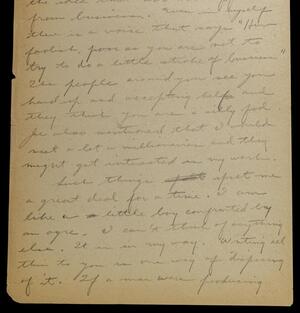 from business. myself
there is a voice that says "How
foolish, poor as you are not to
try to do a little stroke of business"
The people around you see you
hard up and accepting help and
they think you are a silly fool
He also mentioned that I would
meet a lot of millionaires and they
might get interested in my work.
Such things upset me
a great deal for a time. I am
like a little boy confronted by
an ogre. I can't think of anything
else. It is in my way. Writing all
this to you is one way of disposing
of it. If a man were producing